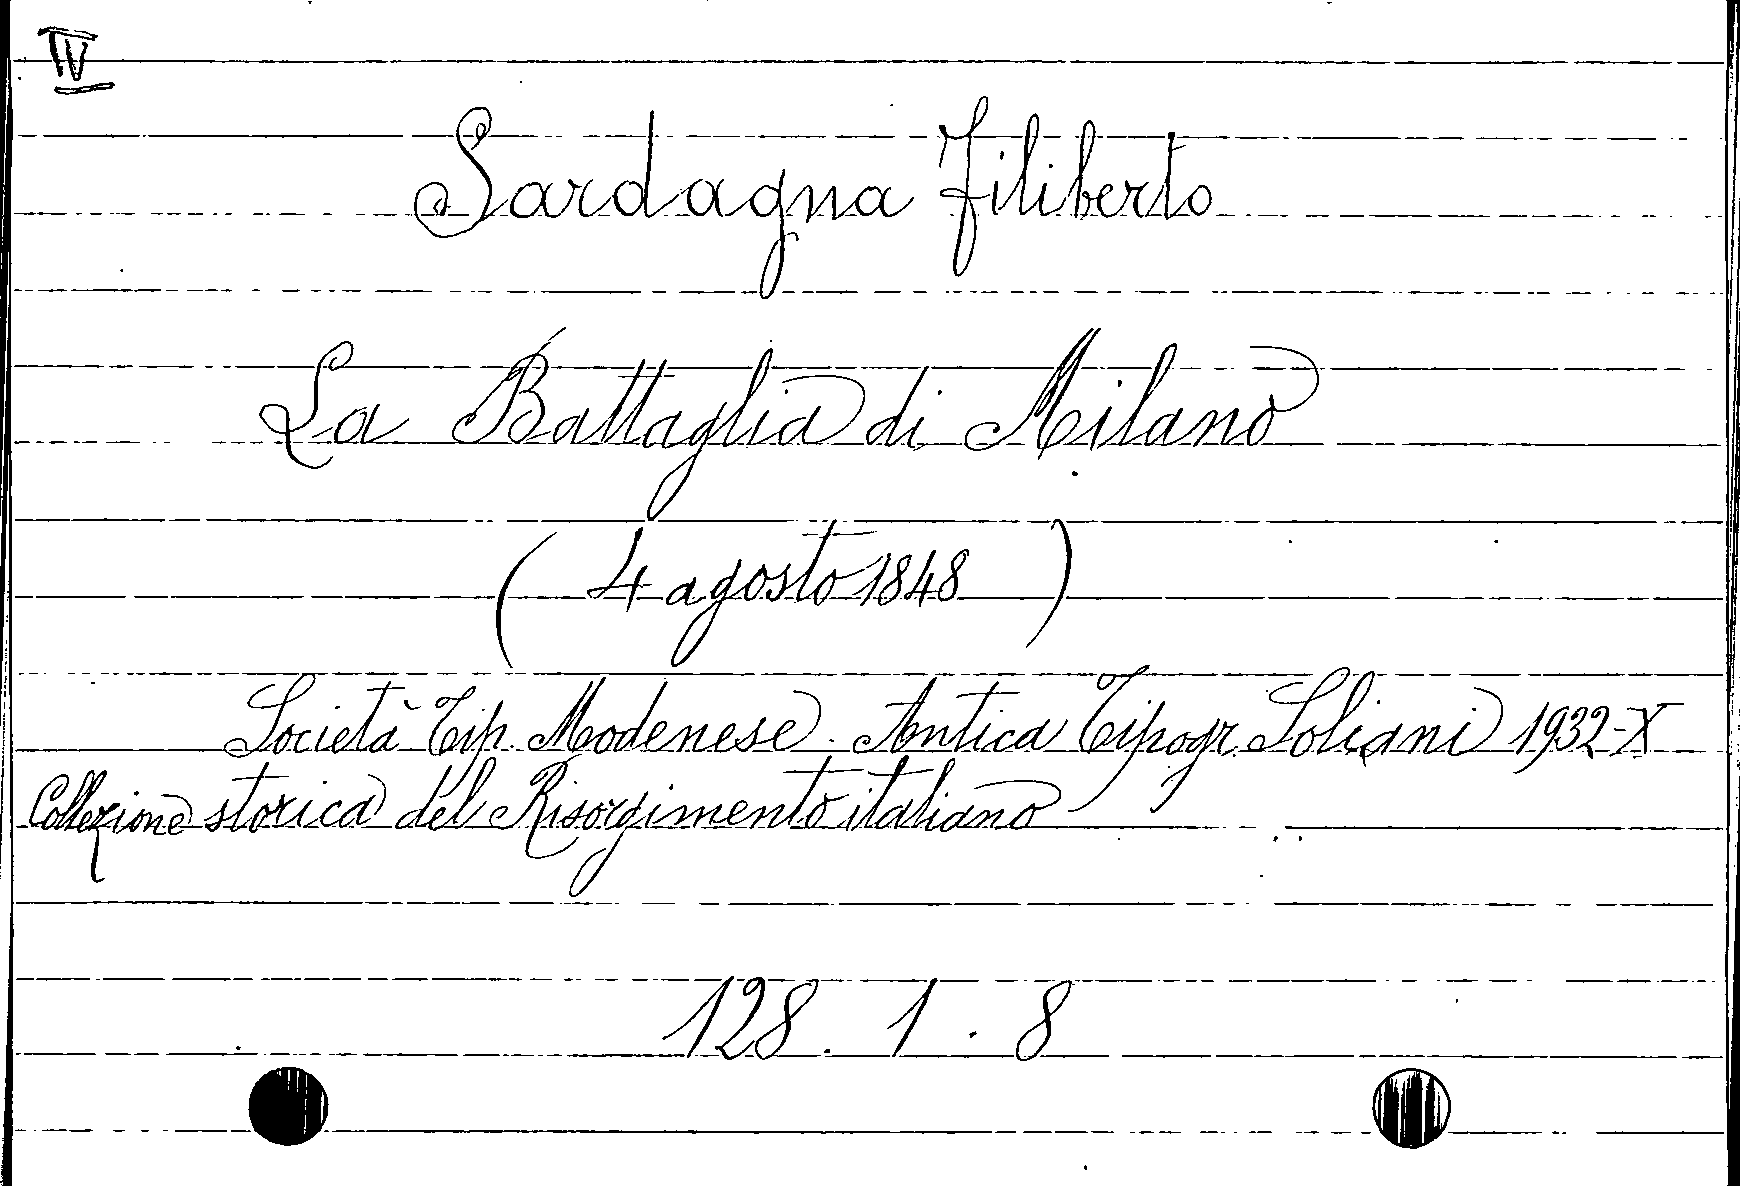 IV
Sardagna Filiberto
La Battaglia di Milano
( 4 agosto 1848 )
Società Tip. Modenese. Antica Tipogr. Soliani 1932-X
Collezione storica del Risorgimento italiano
128. 1. 8